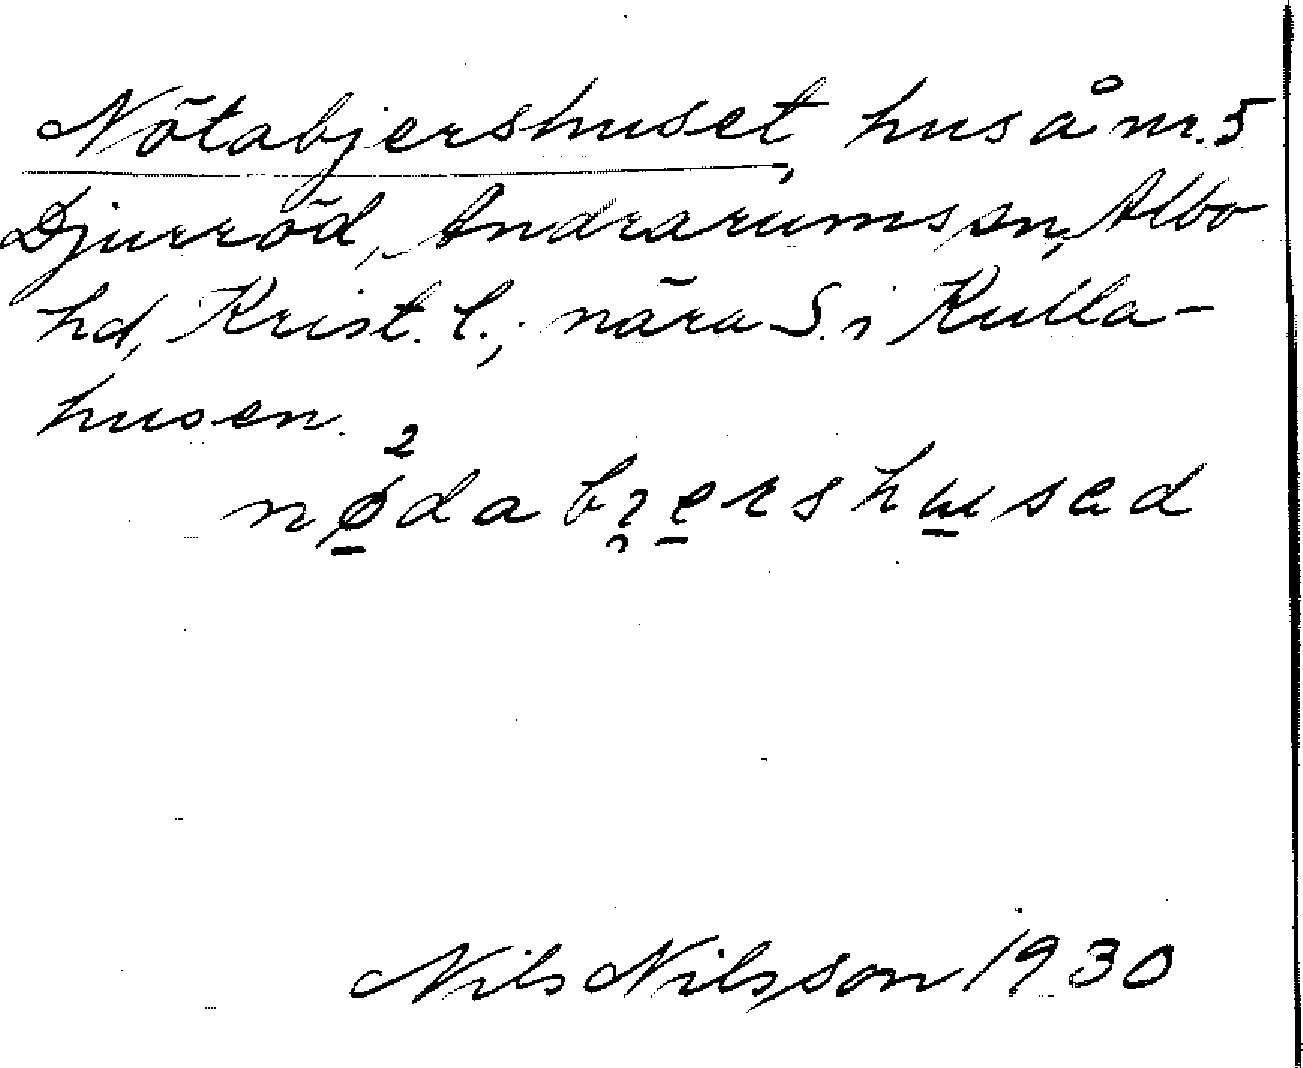 Nötabjershuset, hus å nr. 5
Djurröd, Andrarums sn, Albo
hd, Krist. l.; nära S. i Kulla-
husen.
nø̱²dabɿ̯e̱rshɯ̱sad
Nils Nilsson 1930